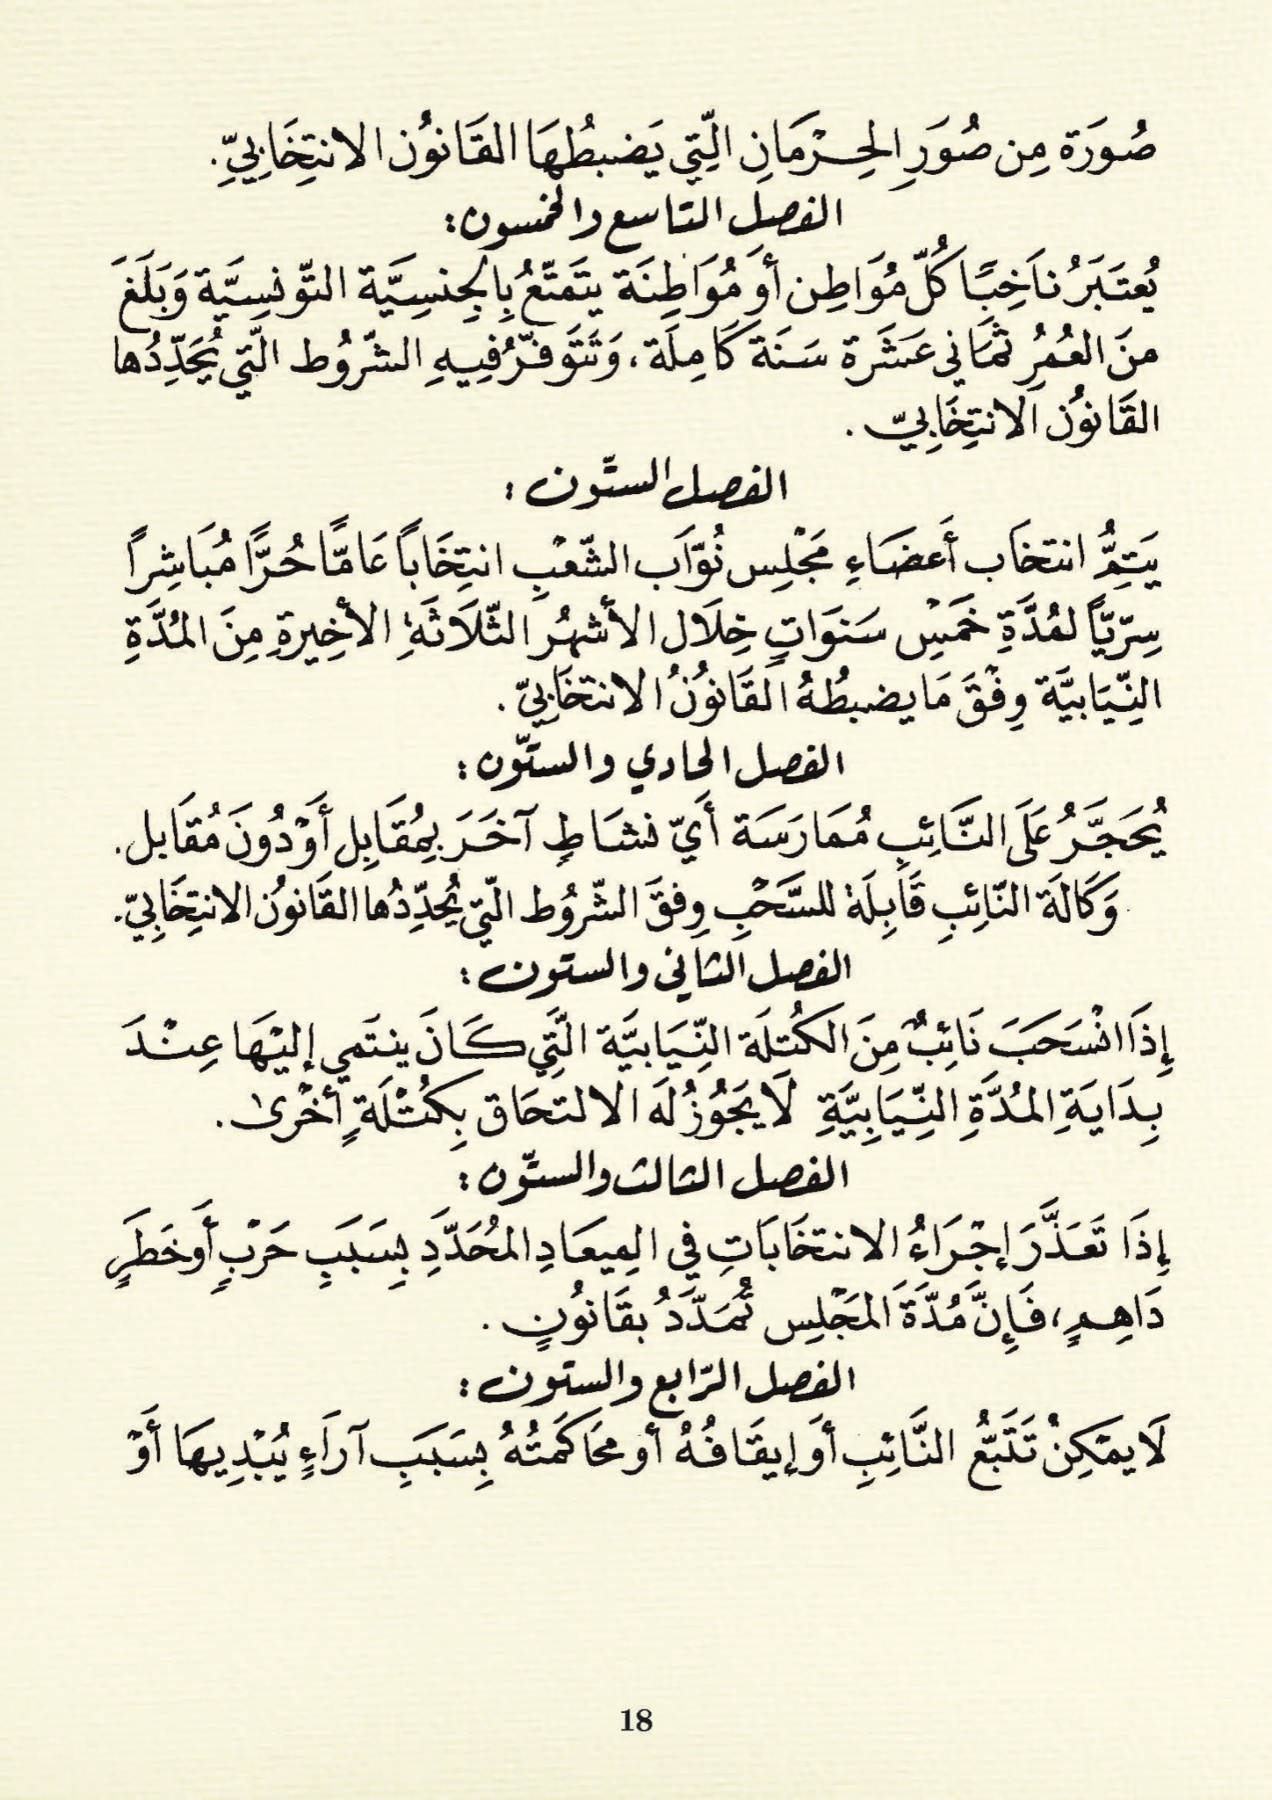 صُورَة مِن صُوَرِ الحِرْمَانِ الّتِي يَضبطُهَا القَانُون الانتِخَابِيِّ.
الفصل التاسع والخمسون:
يُعتَبَرُ نَاخِبًا كُلّ مُوَاطِن أوَ مُوَاطِنَة يتَمَتّعُ بِالجِنسِيَّة التّونسِيَّة وَبَلَغَ
منَ العُمُرِ ثمَاني عَشَرَة سَنَة كَامِلَة، وَتَتَوفّرُ فِيهِ الشّرُوط الّتي يُحَدِّدُها
القَانُون الانتِخَابيّ.
الفصل الستّون:
يَتِمُّ انتخَاب أَعضَاءِ مَجْلِس نُوّاَب الشّعْبِ انتِخَاباً عَامًّا حُرًّا مُبَاشِراً
سِرّيّاً لمُدَّةِ خَمْسِ سَنَوَاتٍ خِلَال الأشهُر الثّلَاثَةِ الأخِيرةِ مِنَ المُدَّةِ
النِّيَابيَّة وِفْقَ مَا يضبطُهُ القَانُونُ الانتخَابيّ.
الفصل الحادي والستّون:
يُحَجَّرُ عَلَى النَّائِبِ مُمَارَسَة أَيّ نشَاطٍ آخَرَ بِمُقَابِل أَوْ دُونَ مُقَابل.
وَكَالَة النّائِبِ قَابِلَة للسَّحْبِ وِفقَ الشّرُوط الّتي يُحَدِّدُها القَانُون الانتِخَابِيّ.
الفصل الثاني والستون:
إِذَا انْسَحَبَ نَائِبٌ مِنَ الكُتلَة النِّيَابيَّة الَّتِي كَانَ ينتَمي إليْهَا عِنْدَ
بِدَايَةِ المُدَّةِ النِّيَابِيَّةِ لَا يَجُوزُ لَهَ الالتحَاق بِكُتْلَةٍ أخْرىٰ.
الفصل الثالث والستّون:
إِذَا تَعَذَّرَ إجْرَاءُ الانتخَابَاتِ فِي المِيعَادِ المُحَدَّدِ بِسَبَبِ حَرْبٍ أَو خَطَرٍ
دَاهِمٍ، فَإِنَّ مُدَّةَ المَجْلِس تُمَدَّدُ بقَانُونٍ.
الفصل الرّابع والستون:
لَا يمْكِنُ تَتَبُّعُ النَّائِبِ أوَ إيقَافُهُ أو محَاكَمتُهُ بِسَبَبِ آرَاءٍ يُبْدِيهَا أَوْ
18